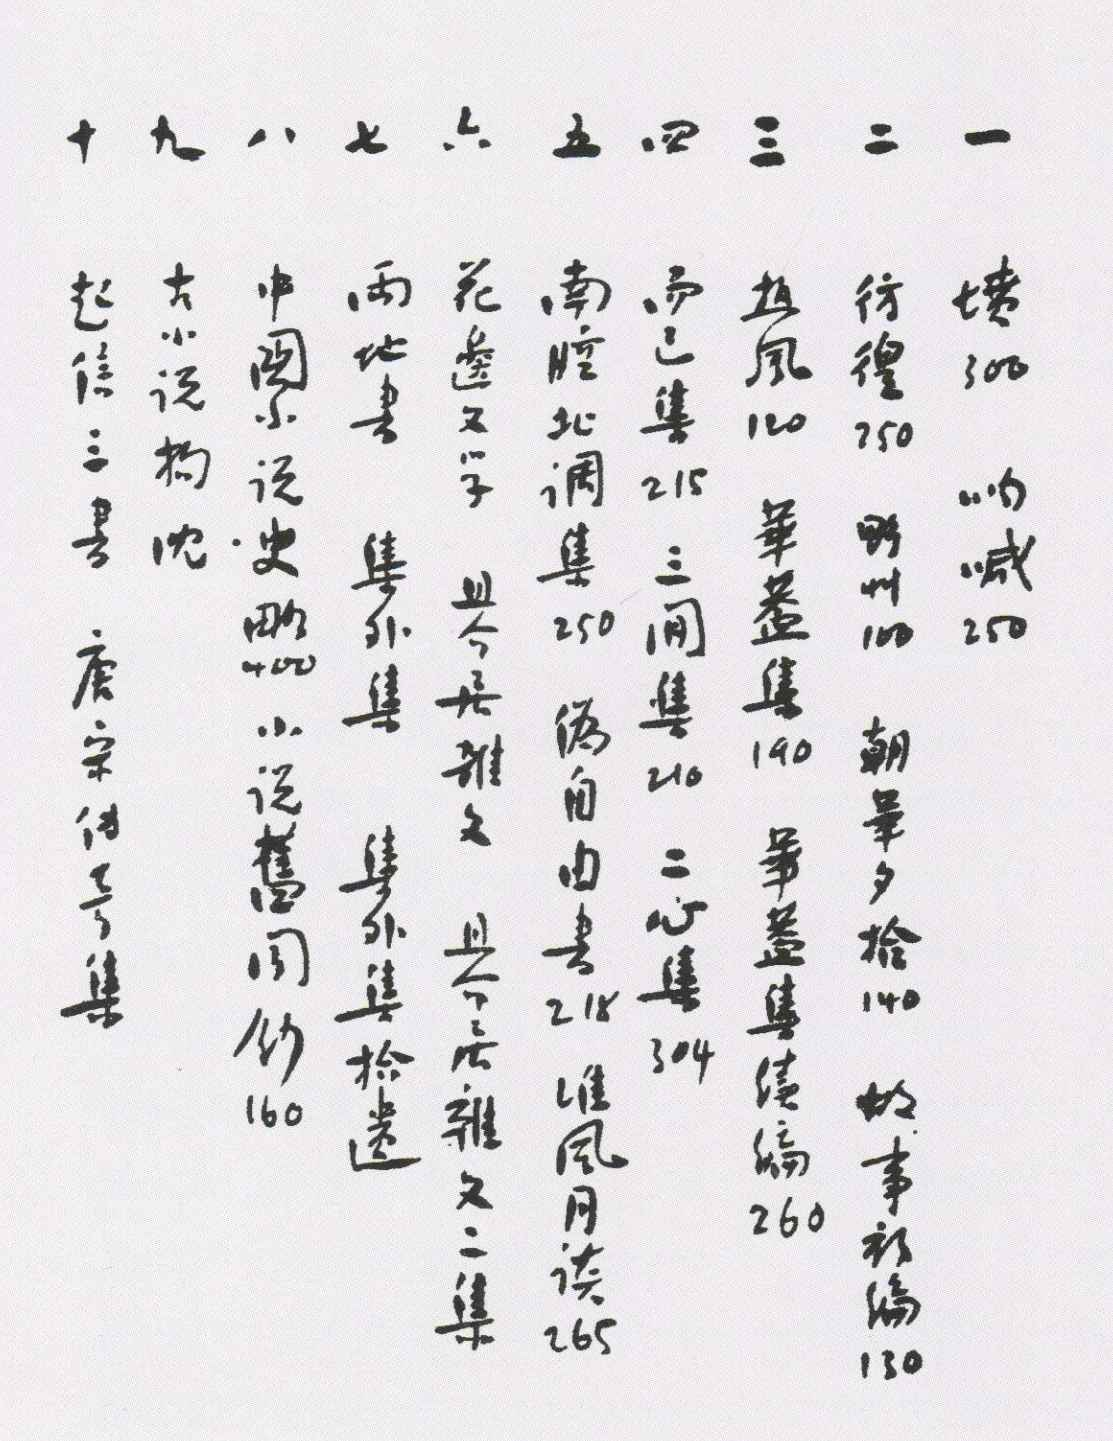 一 墳300 呐喊250
二 彷徨250 野艸100 朝華夕拾140 故事新編130
三 熱風120 華蓋集190 華蓋集續編260
四 而已集215 三閒集210 二心集304
五 南腔北調集250 偽自由書218 准風月談265
六 花邊文學 且介居雜文 且介居雜文二集
七 兩地書 集外集 集外集拾遺
八 中國小說史略400 小說舊聞鈔160
九 古小說鉤沈
十 起信三書 唐宋傳奇集